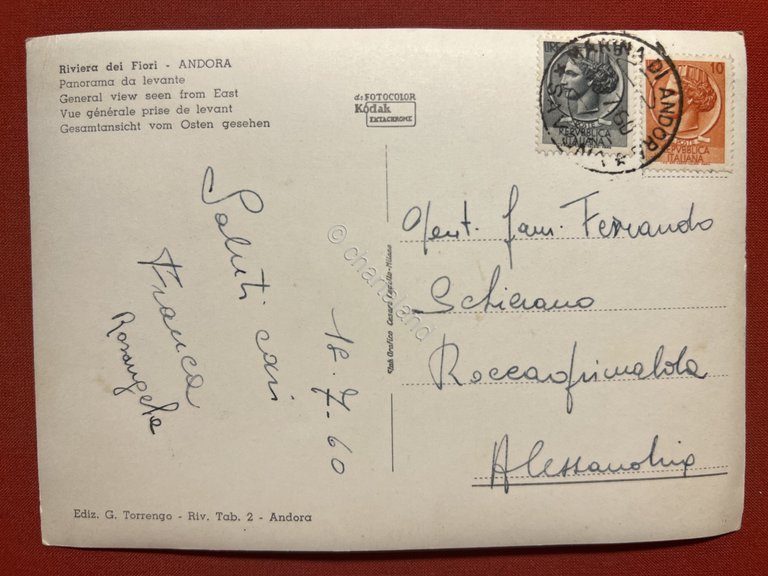 Riviera dei Fiori - ANDORA
Panorama da levante
General view seen from East
Vue générale prise de levant
Gesamtansicht vom Osten gesehen
da FOTOCOLOR
Kodak
EKTACHROME
LIRE
POSTE
REPVBBLICA
ITALIANA
10
POSTE
REPVBBLICA
ITALIANA
MARINA DI ANDORA
Saluti cari
Franca
Rosangela
18.7.60
© chartaland
Gent. Fam. Ferrando
Schierano
Roccagrimalda
Alessandria
Ediz. G. Torrengo - Riv. Tab. 2 - Andora